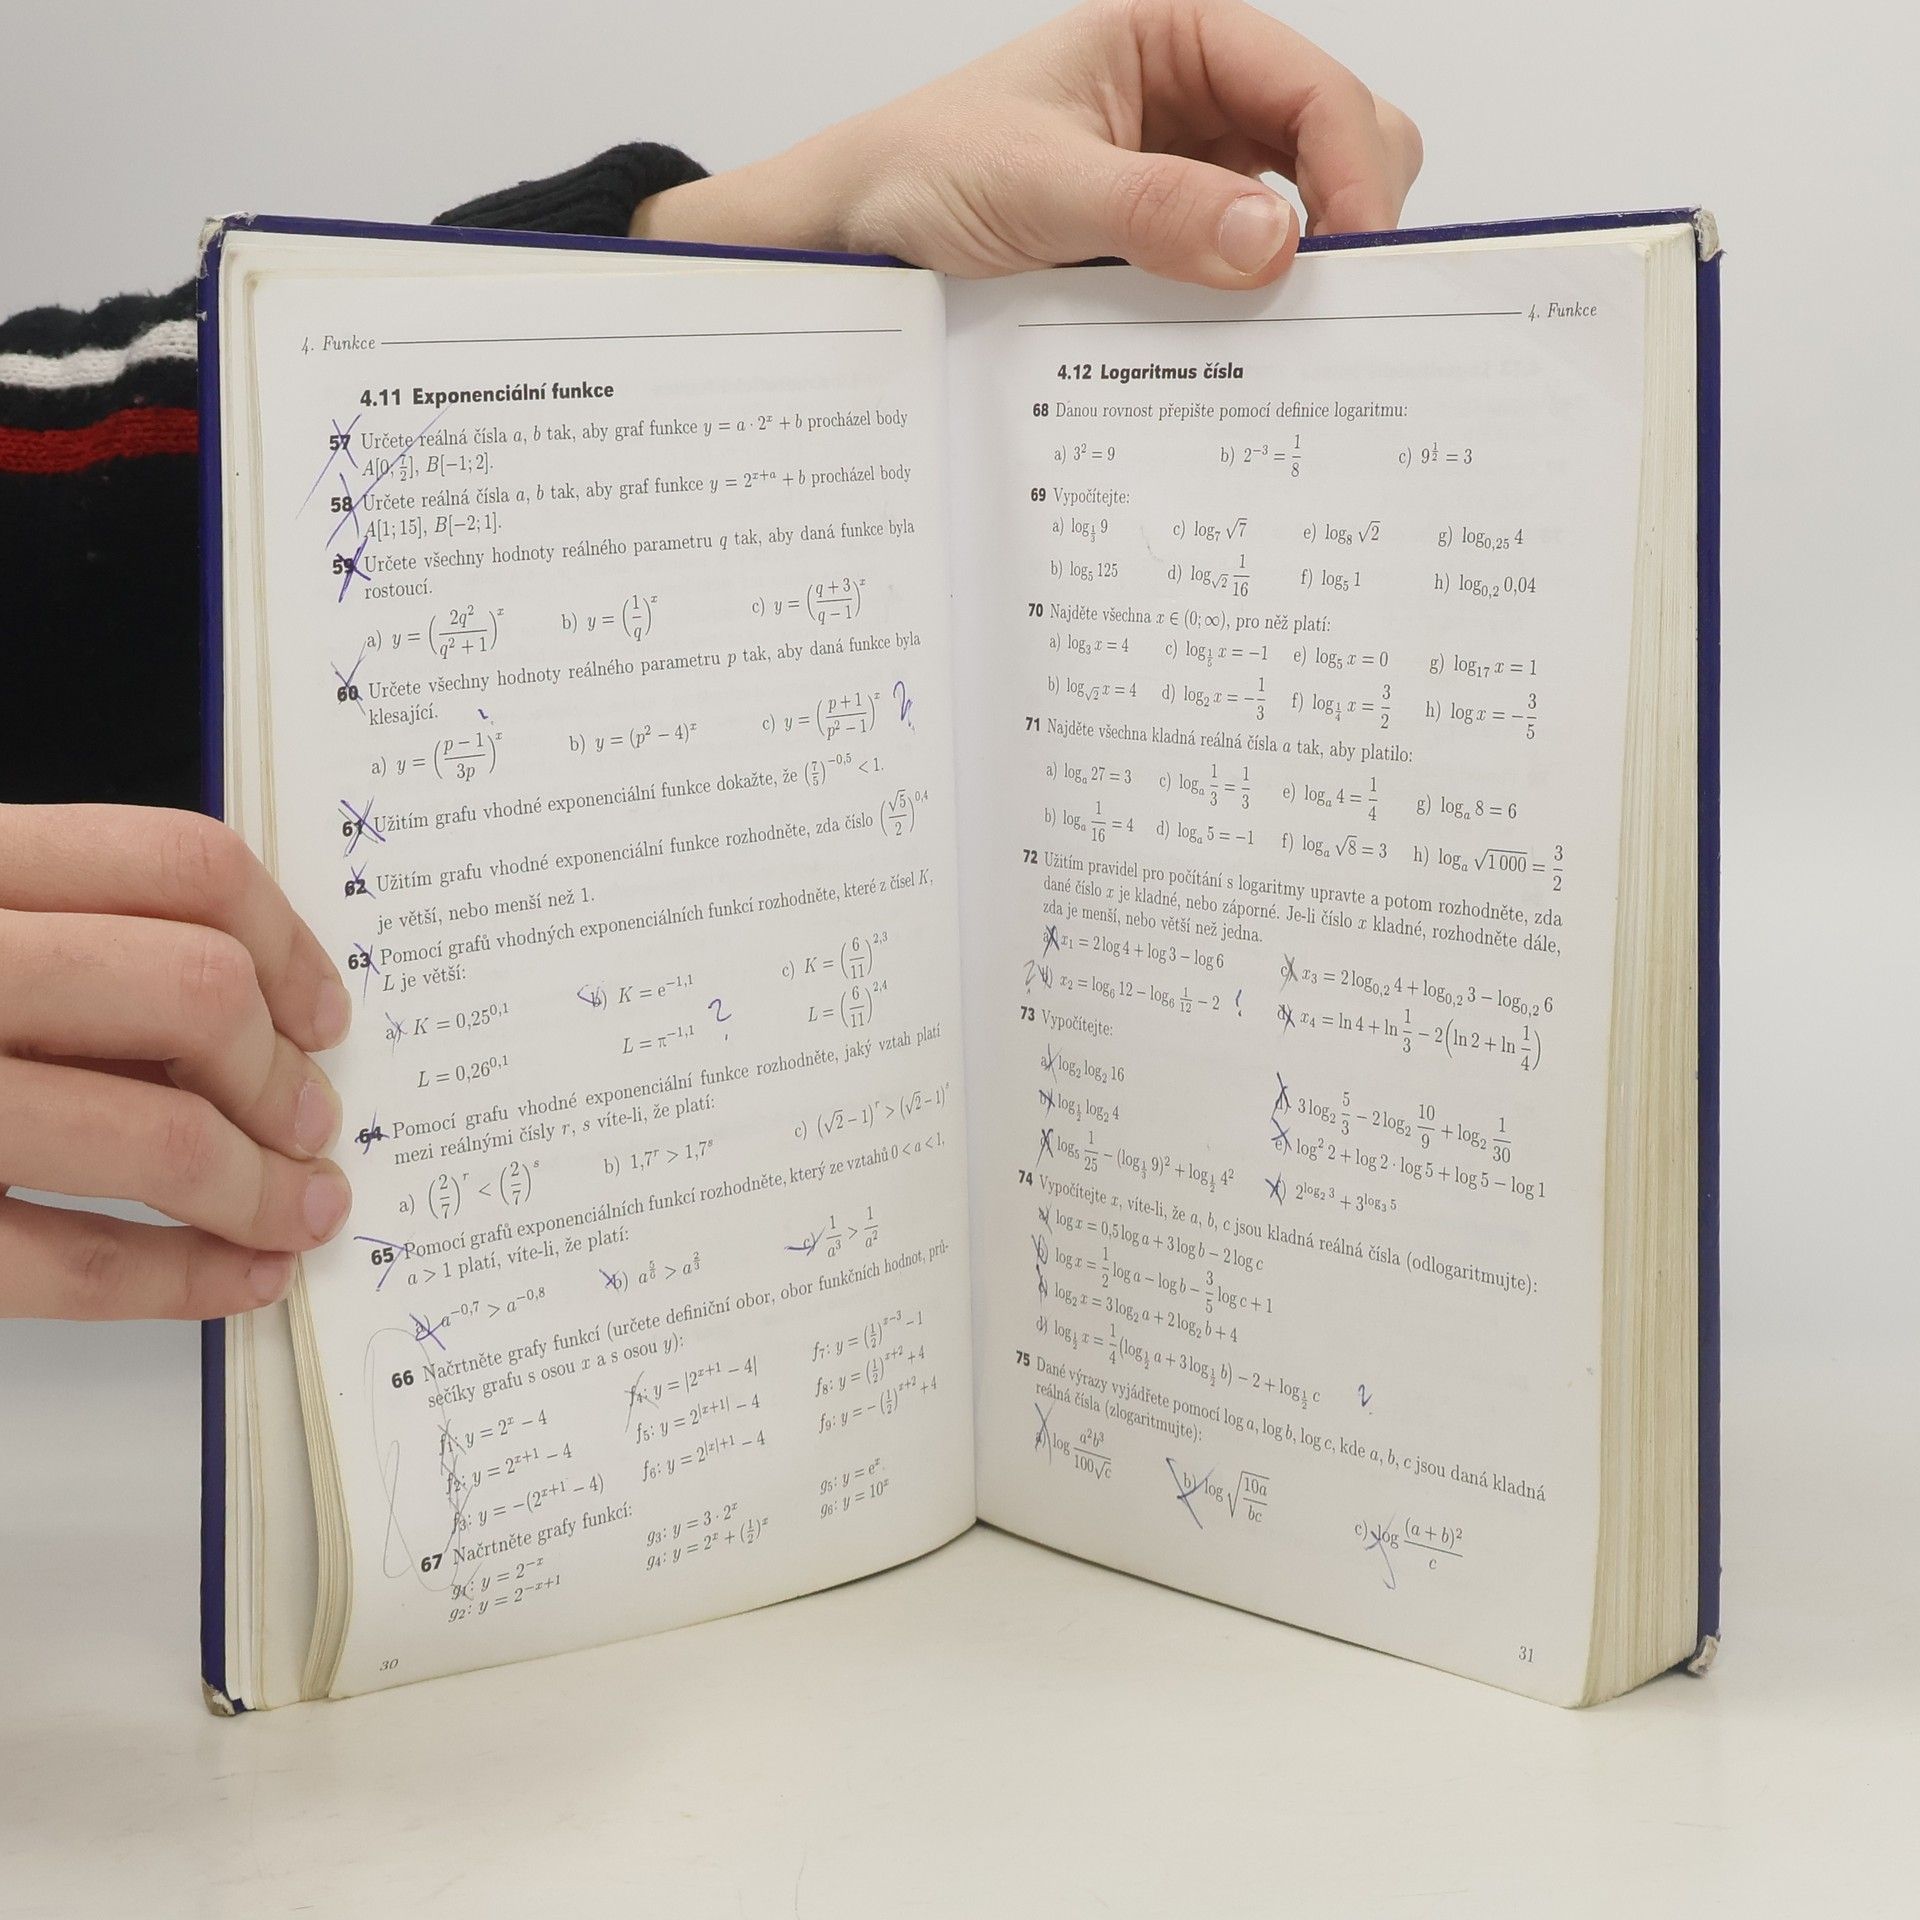 4. Funkce
4.11 Exponenciální funkce
57 Určete reálná čísla a, b tak, aby graf funkce y = a · 2^x + b procházel body
A[0; 7/2], B[−1; 2].
58 Určete reálná čísla a, b tak, aby graf funkce y = 2^(x+a) + b procházel body
A[1; 15], B[−2; 1].
59 Určete všechny hodnoty reálného parametru q tak, aby daná funkce byla
rostoucí.
a) y = (2q²/(q² + 1))^x b) y = (1/q)^x c) y = ((q + 3)/(q − 1))^x
60 Určete všechny hodnoty reálného parametru p tak, aby daná funkce byla
klesající.
a) y = ((p − 1)/3p)^x b) y = (p² − 4)^x c) y = ((p + 1)/(p² − 1))^x ?
61 Užitím grafu vhodné exponenciální funkce dokažte, že (7/5)^−0,5 < 1.
62 Užitím grafu vhodné exponenciální funkce rozhodněte, zda číslo (√5/2)^0,4
je větší, nebo menší než 1.
63 Pomocí grafů vhodných exponenciálních funkcí rozhodněte, které z čísel K,
L je větší:
a) K = 0,25^0,1 b) K = e^−1,1 c) K = (6/11)^2,3
L = 0,26^0,1 L = π^−1,1 ? L = (6/11)^2,4
64 Pomocí grafu vhodné exponenciální funkce rozhodněte, jaký vztah platí
mezi reálnými čísly r, s víte-li, že platí:
a) (2/7)^r < (2/7)^s b) 1,7^r > 1,7^s c) (√2 − 1)^r > (√2 − 1)^s
65 Pomocí grafů exponenciálních funkcí rozhodněte, který ze vztahů 0 < a < 1,
a > 1 platí, víte-li, že platí:
a) a^−0,7 > a^−0,8 b) a^(5/6) > a^(2/3) c) 1/a³ > 1/a²
66 Načrtněte grafy funkcí (určete definiční obor, obor funkčních hodnot, prů-
sečíky grafu s osou x a s osou y):
f₁: y = 2^x − 4 f₄: y = |2^(x+1) − 4| f₇: y = (1/2)^(x−3) − 1
f₂: y = 2^(x+1) − 4 f₅: y = 2^|x+1| − 4 f₈: y = (1/2)^(x+2) + 4
f₃: y = −(2^(x+1) − 4) f₆: y = 2^(|x|+1) − 4 f₉: y = −(1/2)^(x+2) + 4
67 Načrtněte grafy funkcí:
g₁: y = 2^−x g₃: y = 3 · 2^x g₅: y = e^x
g₂: y = 2^(−x+1) g₄: y = 2^x + (1/2)^x g₆: y = 10^x
30
4. Funkce
4.12 Logaritmus čísla
68 Danou rovnost přepište pomocí definice logaritmu:
a) 3² = 9 b) 2^−3 = 1/8 c) 9^(1/2) = 3
69 Vypočítejte:
a) log_(1/3) 9 c) log₇ √7 e) log₈ √2 g) log_0,25 4
b) log₅ 125 d) log_√2 1/16 f) log₅ 1 h) log_0,2 0,04
70 Najděte všechna x ∈ (0; ∞), pro něž platí:
a) log₃ x = 4 c) log_(1/5) x = −1 e) log₅ x = 0 g) log₁₇ x = 1
b) log_√2 x = 4 d) log₂ x = −1/3 f) log_(1/4) x = 3/2 h) log x = −3/5
71 Najděte všechna kladná reálná čísla a tak, aby platilo:
a) logₐ 27 = 3 c) logₐ 1/3 = 1/3 e) logₐ 4 = 1/4 g) logₐ 8 = 6
b) logₐ 1/16 = 4 d) logₐ 5 = −1 f) logₐ √8 = 3 h) logₐ √1 000 = 3/2
72 Užitím pravidel pro počítání s logaritmy upravte a potom rozhodněte, zda
dané číslo x je kladné, nebo záporné. Je-li číslo x kladné, rozhodněte dále,
zda je menší, nebo větší než jedna.
a) x₁ = 2 log 4 + log 3 − log 6 c) x₃ = 2 log_0,2 4 + log_0,2 3 − log_0,2 6
? b) x₂ = log₆ 12 − log₆ 1/12 − 2 d) x₄ = ln 4 + ln 1/3 − 2(ln 2 + ln 1/4)
73 Vypočítejte:
a) log₂ log₂ 16 d) 3 log₂ 5/3 − 2 log₂ 10/9 + log₂ 1/30
b) log_(1/2) log₂ 4 e) log² 2 + log 2 · log 5 + log 5 − log 1
c) log₅ 1/25 − (log_(1/3) 9)² + log_(1/2) 4² f) 2^(log₂ 3) + 3^(log₃ 5)
74 Vypočítejte x, víte-li, že a, b, c jsou kladná reálná čísla (odlogaritmujte):
a) log x = 0,5 log a + 3 log b − 2 log c
b) log x = 1/2 log a − log b − 3/5 log c + 1
c) log₂ x = 3 log₂ a + 2 log₂ b + 4
d) log_(1/2) x = 1/4(log_(1/2) a + 3 log_(1/2) b) − 2 + log_(1/2) c ?
75 Dané výrazy vyjádřete pomocí log a, log b, log c, kde a, b, c jsou daná kladná
reálná čísla (zlogaritmujte):
a) log a²b³/(100√c) b) log √(10a/bc) c) log (a + b)²/c
31